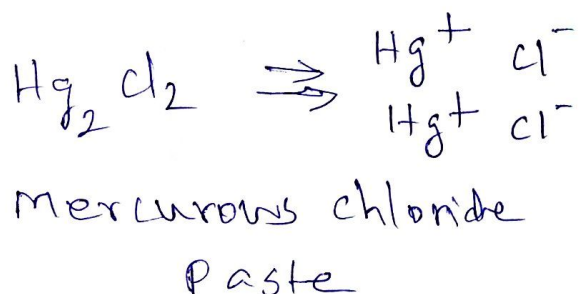 Hg₂ Cl₂ ⇒ Hg⁺ Cl⁻
Hg⁺ Cl⁻
Mercurous chloride
Paste